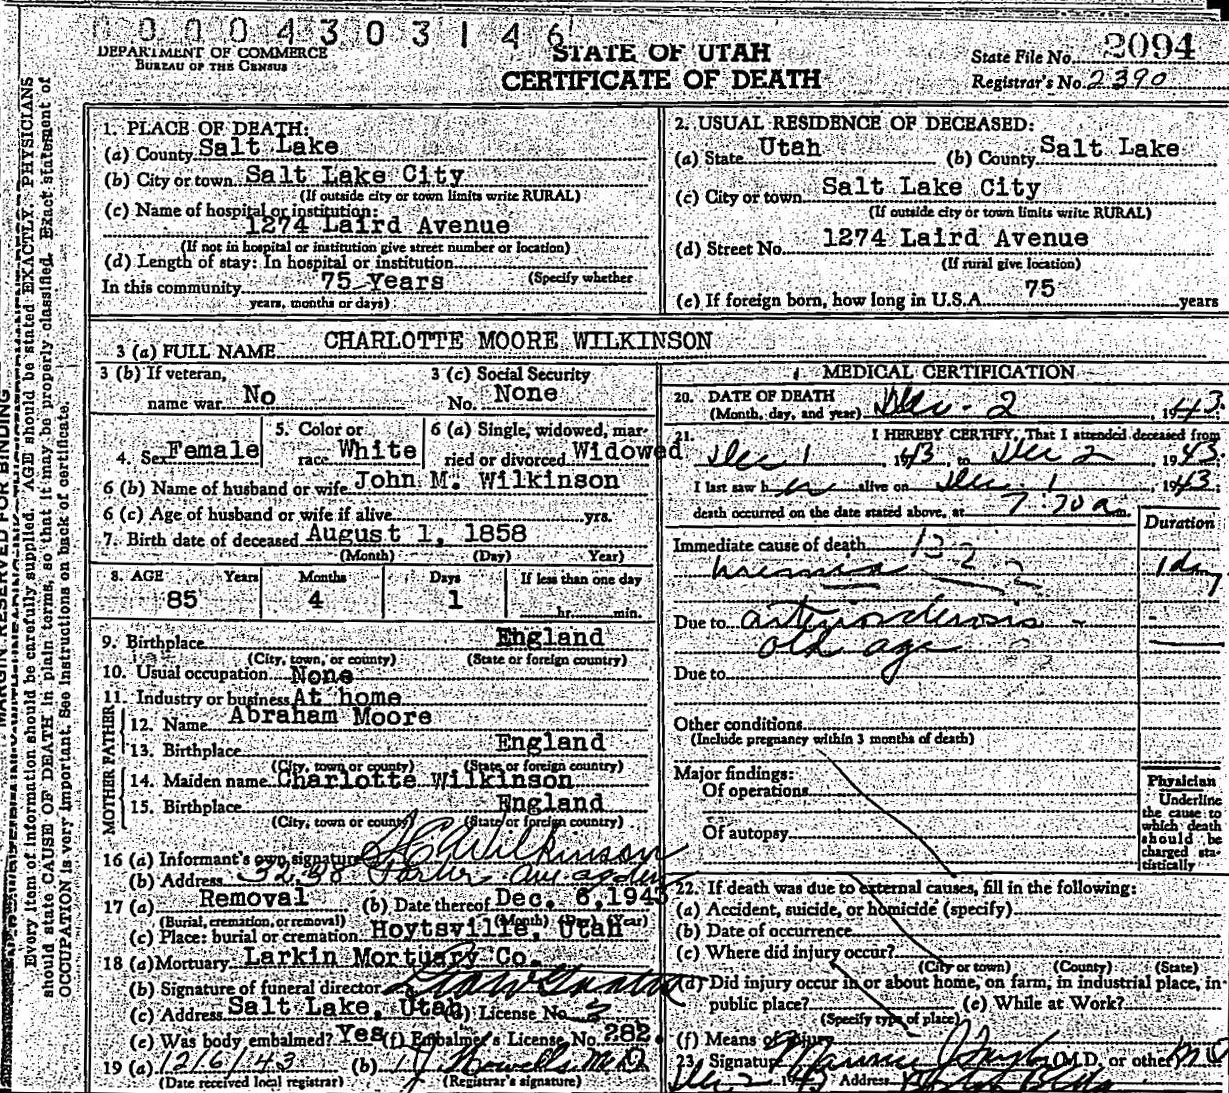 0004303146
DEPARTMENT OF COMMERCE
BUREAU OF THE CENSUS
STATE OF UTAH
CERTIFICATE OF DEATH
State File No. 2094
Registrar's No. 2390
MARGIN RESERVED FOR BINDING
Every item of information should be carefully supplied. AGE should be stated EXACTLY. PHYSICIANS
should state CAUSE OF DEATH in plain terms, so that it may be properly classified. Exact statement of
OCCUPATION is very important. See instructions on back of certificate.
1. PLACE OF DEATH:
(a) County Salt Lake
(b) City or town Salt Lake City
(If outside city or town limits write RURAL)
(c) Name of hospital or institution:
1274 Laird Avenue
(If not in hospital or institution give street number or location)
(d) Length of stay: In hospital or institution
In this community 75 Years (Specify whether
years, months or days)
2. USUAL RESIDENCE OF DECEASED:
(a) State Utah (b) County Salt Lake
(c) City or town Salt Lake City
(If outside city or town limits write RURAL)
(d) Street No. 1274 Laird Avenue
(If rural give location)
(e) If foreign born, how long in U.S.A. 75 years
3 (a) FULL NAME CHARLOTTE MOORE WILKINSON
3 (b) If veteran, name war No
3 (c) Social Security No. None
4. Sex Female
5. Color or race White
6 (a) Single, widowed, married or divorced Widowed
6 (b) Name of husband or wife John M. Wilkinson
6 (c) Age of husband or wife if alive yrs.
7. Birth date of deceased August 1, 1858
(Month) (Day) Year)
8. AGE Years Months Days If less than one day
85 4 1 hr. min.
9. Birthplace England
(City, town, or county) (State or foreign country)
10. Usual occupation None
11. Industry or business At home
FATHER
12. Name Abraham Moore
13. Birthplace England
(City, town or county) (State or foreign country)
MOTHER
14. Maiden name Charlotte Wilkinson
15. Birthplace England
(City, town or county) (State or foreign country)
16 (a) Informant's own signature Wilkinson
(b) Address Ave
17 (a) Removal (b) Date thereof Dec. 6, 1943
(Burial, cremation, or removal) (Month) (Day) (Year)
(c) Place: burial or cremation Hoytsville, Utah
18 (a) Mortuary Larkin Mortuary Co.
(b) Signature of funeral director
(c) Address Salt Lake, Utah (d) License No. 3
(e) Was body embalmed? Yes (f) Embalmer's License No. 282
19 (a) 12/6/43 (b) Howells M.D.
(Date received local registrar) (Registrar's signature)
MEDICAL CERTIFICATION
20. DATE OF DEATH
(Month, day, and year) Dec. 2, 1943.
21. I HEREBY CERTIFY, That I attended deceased from
Dec 1, 1943, to Dec 2, 1943.
I last saw her alive on Dec. 1, 1943.
death occurred on the date stated above, at a m.
Duration
Immediate cause of death
uremia 1 day
Due to arteriosclerosis
old age
Due to
Other conditions
(Include pregnancy within 3 months of death)
Major findings:
Of operations
Of autopsy
Physician
Underline
the cause to
which death
should be
charged sta-
tistically
22. If death was due to external causes, fill in the following:
(a) Accident, suicide, or homicide (specify)
(b) Date of occurrence
(c) Where did injury occur?
(City or town) (County) (State)
(d) Did injury occur in or about home, on farm, in industrial place, in
public place? (e) While at Work?
(Specify type of place)
(f) Means of injury
23. Signature (M.D. or other) M D
Dec 2 1943 Address Bldg